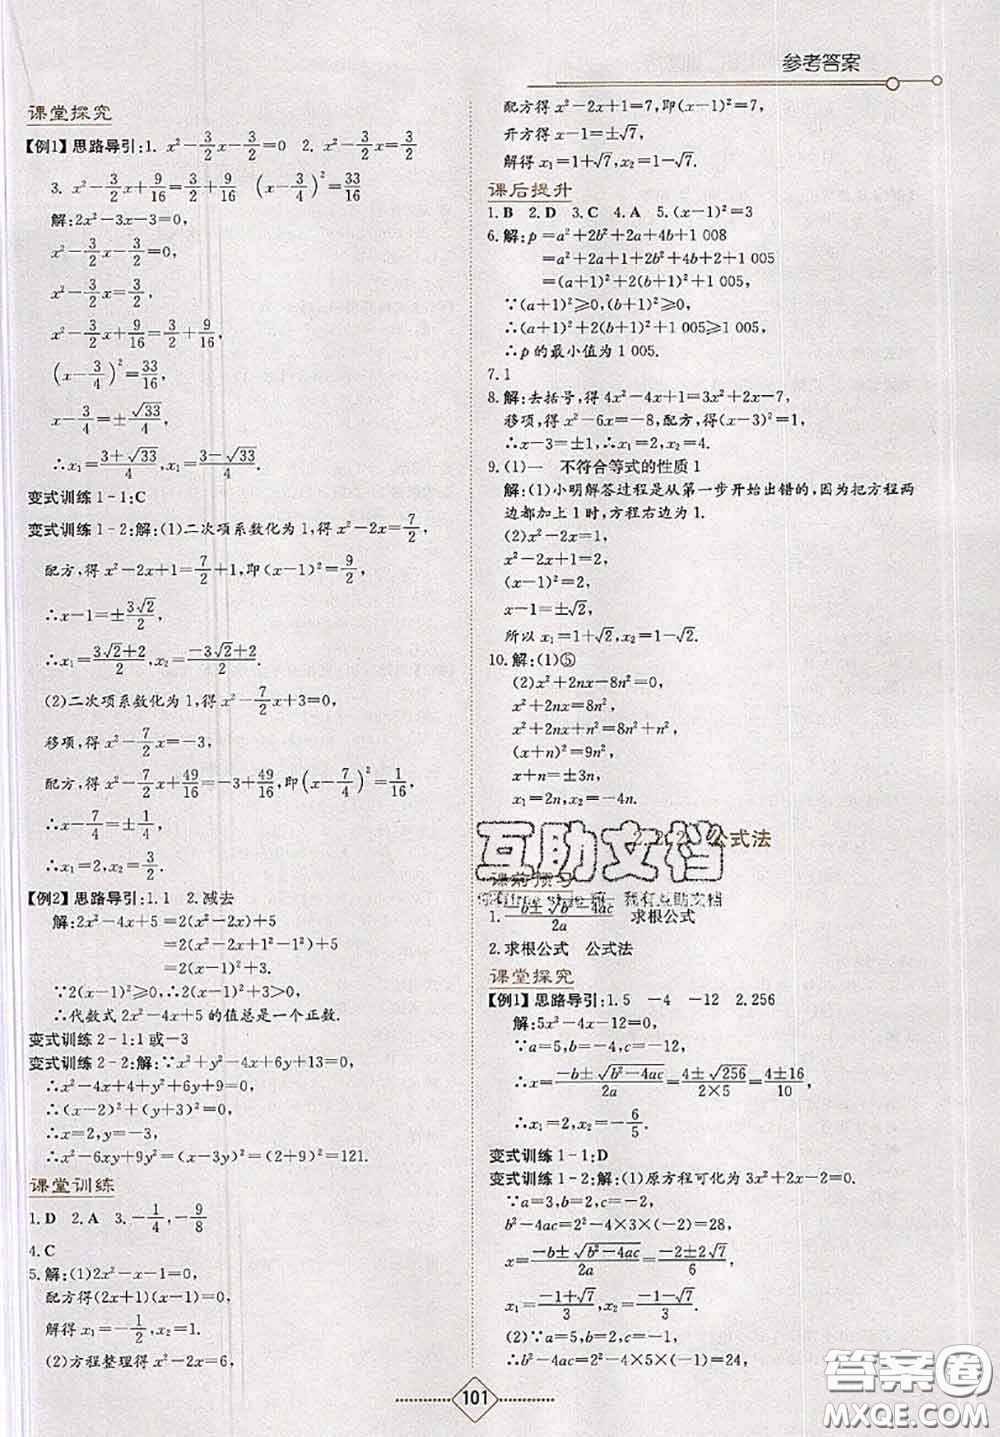 参考答案
课堂探究
【例1】思路导引:1. x²-3/2x-3/2=0 2. x²-3/2x=3/2
3. x²-3/2x+9/16=3/2+9/16 (x-3/4)²=33/16
解:2x²-3x-3=0,
x²-3/2x-3/2=0,
x²-3/2x=3/2,
x²-3/2x+9/16=3/2+9/16,
(x-3/4)²=33/16,
x-3/4=±√33/4,
∴x₁=(3+√33)/4,x₂=(3-√33)/4.
变式训练1-1:C
变式训练1-2:解:(1)二次项系数化为1,得x²-2x=7/2,
配方,得x²-2x+1=7/2+1,即(x-1)²=9/2,
∴x-1=±3√2/2,
∴x₁=(3√2+2)/2,x₂=(-3√2+2)/2.
(2)二次项系数化为1,得x²-7/2x+3=0,
移项,得x²-7/2x=-3,
配方,得x²-7/2x+49/16=-3+49/16,即(x-7/4)²=1/16,
∴x-7/4=±1/4,
∴x₁=2,x₂=3/2.
【例2】思路导引:1.1 2.减去
解:2x²-4x+5=2(x²-2x)+5
=2(x²-2x+1²-1²)+5
=2(x-1)²+3.
∵2(x-1)²≥0,∴2(x-1)²+3>0,
∴代数式2x²-4x+5的值总是一个正数.
变式训练2-1:1或-3
变式训练2-2:解:∵x²+y²-4x+6y+13=0,
∴x²-4x+4+y²+6y+9=0,
∴(x-2)²+(y+3)²=0,
∴x=2,y=-3,
∴x²-6xy+9y²=(x-3y)²=(2+9)²=121.
课堂训练
1.D 2.A 3.-1/4,-9/8
4.C
5.解:(1)2x²-x-1=0,
配方得(2x+1)(x-1)=0,
解得x₁=-1/2,x₂=1.
(2)方程整理得x²-2x=6,
配方得x²-2x+1=7,即(x-1)²=7,
开方得x-1=±√7,
解得x₁=1+√7,x₂=1-√7.
课后提升
1.B 2.D 3.C 4.A 5.(x-1)²=3
6.解:p=a²+2b²+2a+4b+1 008
=a²+2a+1+2b²+4b+2+1 005
=(a+1)²+2(b+1)²+1 005,
∵(a+1)²≥0,(b+1)²≥0,
∴(a+1)²+2(b+1)²+1 005≥1 005,
∴p的最小值为1 005.
7.1
8.解:去括号,得4x²-4x+1=3x²+2x-7,
移项,得x²-6x=-8,配方,得(x-3)²=1,
∴x-3=±1,∴x₁=2,x₂=4.
9.(1)一 不符合等式的性质1
解:(1)小明解答过程是从第一步开始出错的,因为把方程两
边都加上1时,方程右边为1.
(2)x²-2x=1,
x²-2x+1=2,
(x-1)²=2,
x-1=±√2,
所以x₁=1+√2,x₂=1-√2.
10.解:(1)⑤
(2)x²+2nx-8n²=0,
x²+2nx=8n²,
x²+2nx+n²=8n²+n²,
(x+n)²=9n²,
x+n=±3n,
x₁=2n,x₂=-4n.
公式法
互助文档
课前预习
1.(-b±√(b²-4ac))/2a 求根公式
2.求根公式 公式法
课堂探究
【例1】思路导引:1.5 -4 -12 2.256
解:5x²-4x-12=0,
∵a=5,b=-4,c=-12,
∴x=(-b±√(b²-4ac))/2a=(4±√256)/(2×5)=(4±16)/10,
∴x₁=2,x₂=-6/5.
变式训练1-1:D
变式训练1-2:解:(1)原方程可化为3x²+2x-2=0.
∵a=3,b=2,c=-2,
b²-4ac=2²-4×3×(-2)=28,
x=(-b±√(b²-4ac))/2a=(-2±2√7)/6,
x₁=(-1+√7)/3,x₂=(-1-√7)/3.
(2)∵a=5,b=2,c=-1,
∴b²-4ac=2²-4×5×(-1)=24,
101
答案圈
MXQE.COM